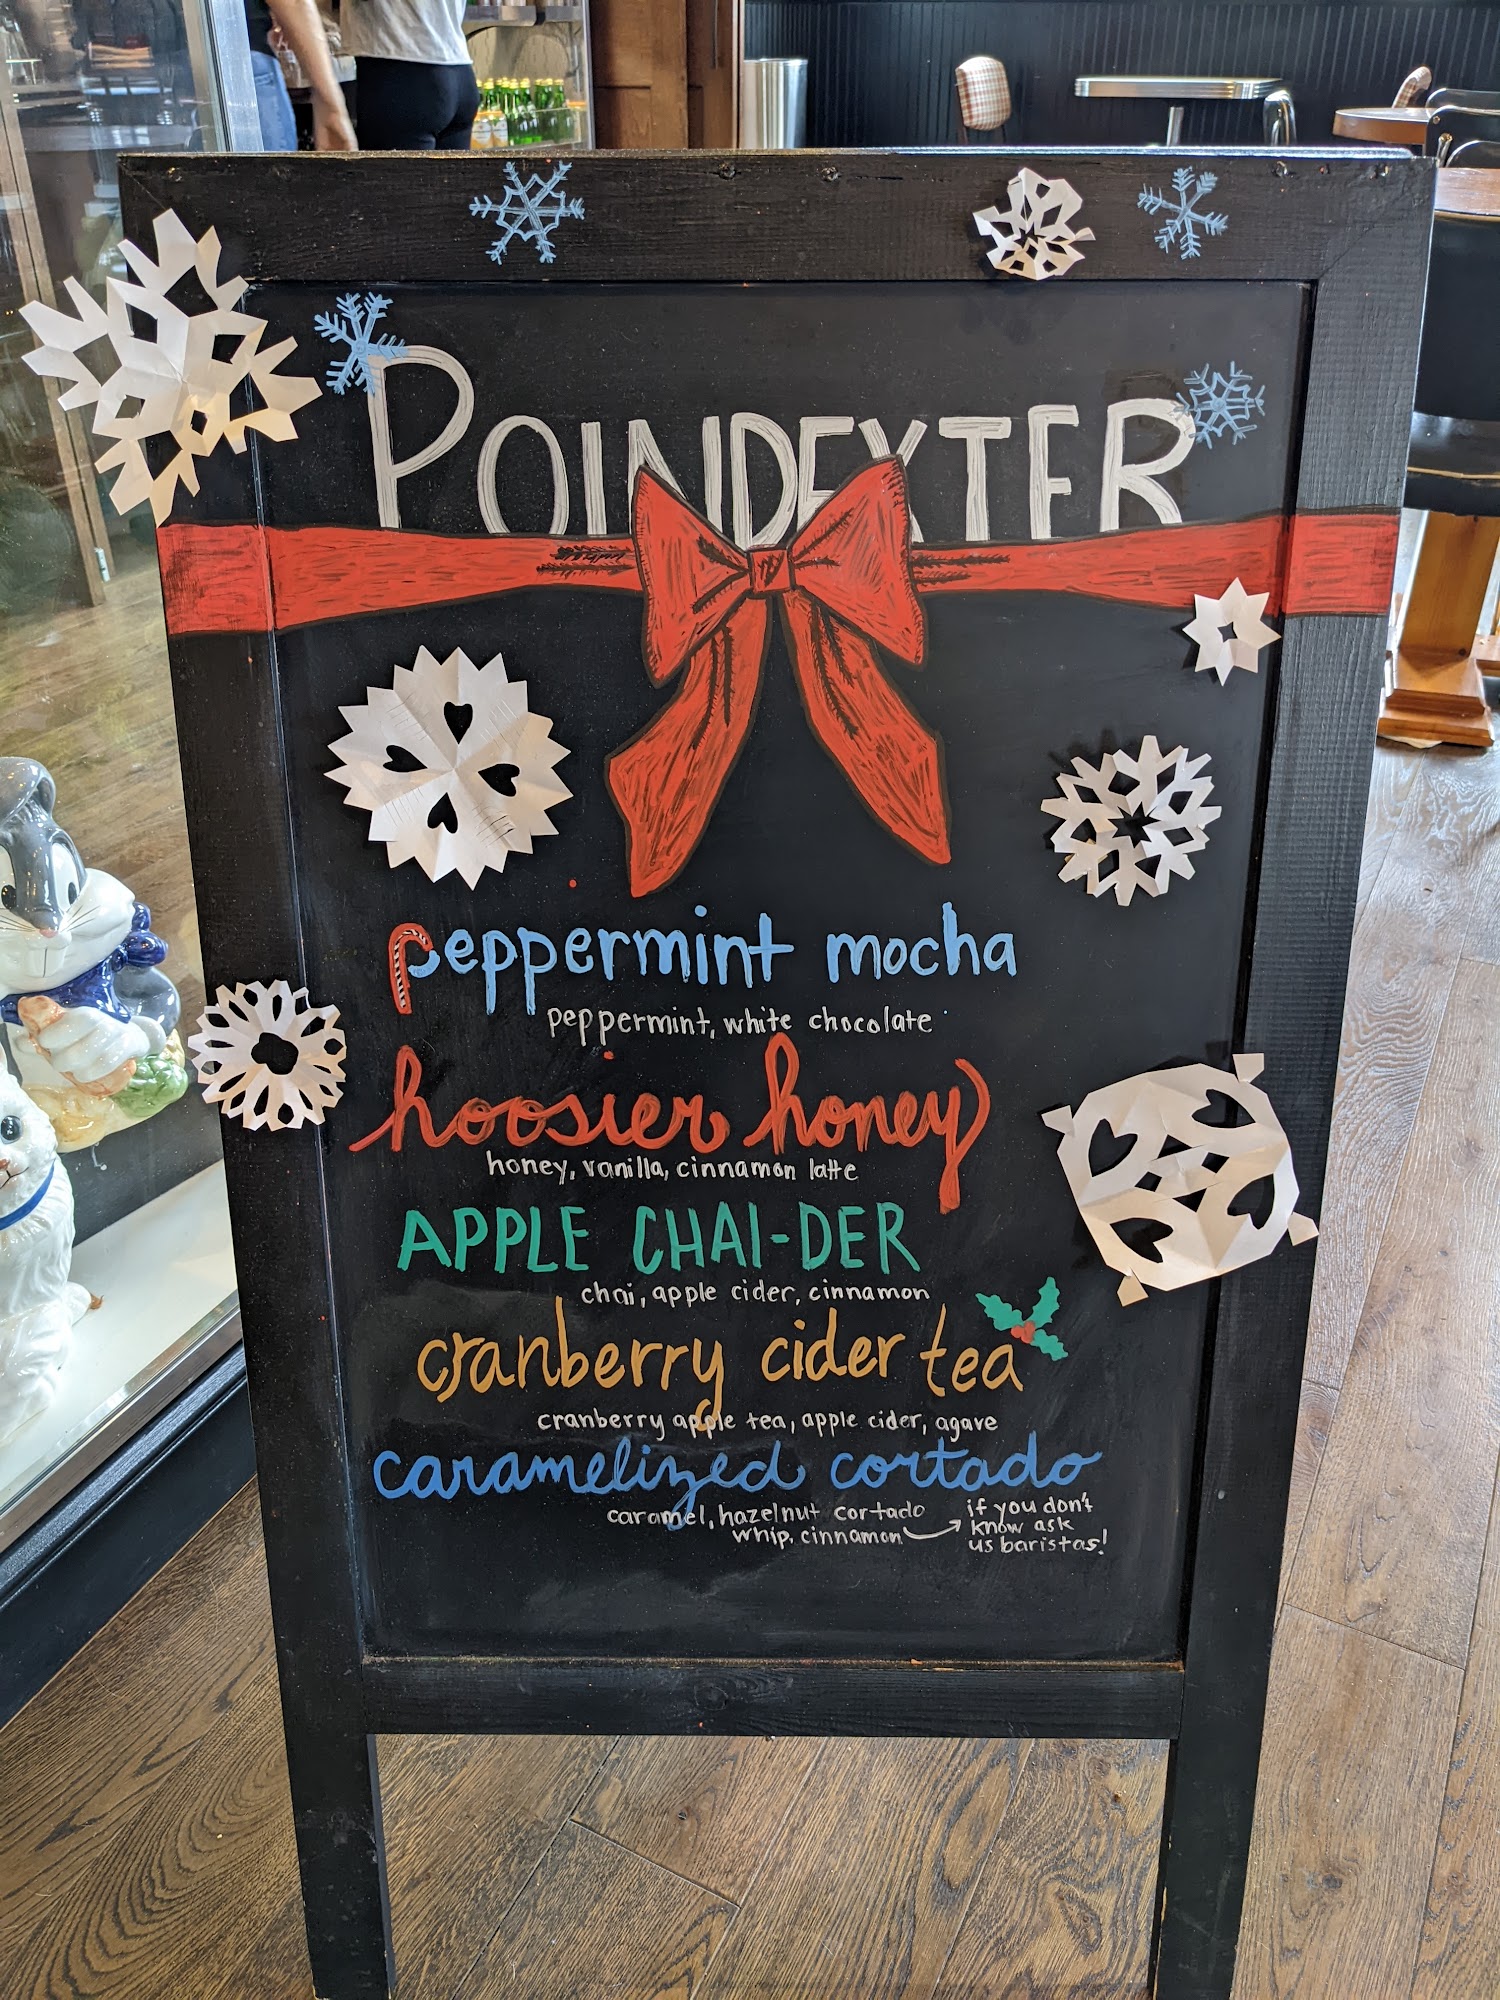 POINDEXTER
peppermint mocha
peppermint, white chocolate
hoosier honey
honey, vanilla, cinnamon latte
APPLE CHAI-DER
chai, apple cider, cinnamon
cranberry cider tea
cranberry apple tea, apple cider, agave
caramelized cortado
caramel, hazelnut cortado
whip, cinnamon
if you don't
know ask
us baristas!